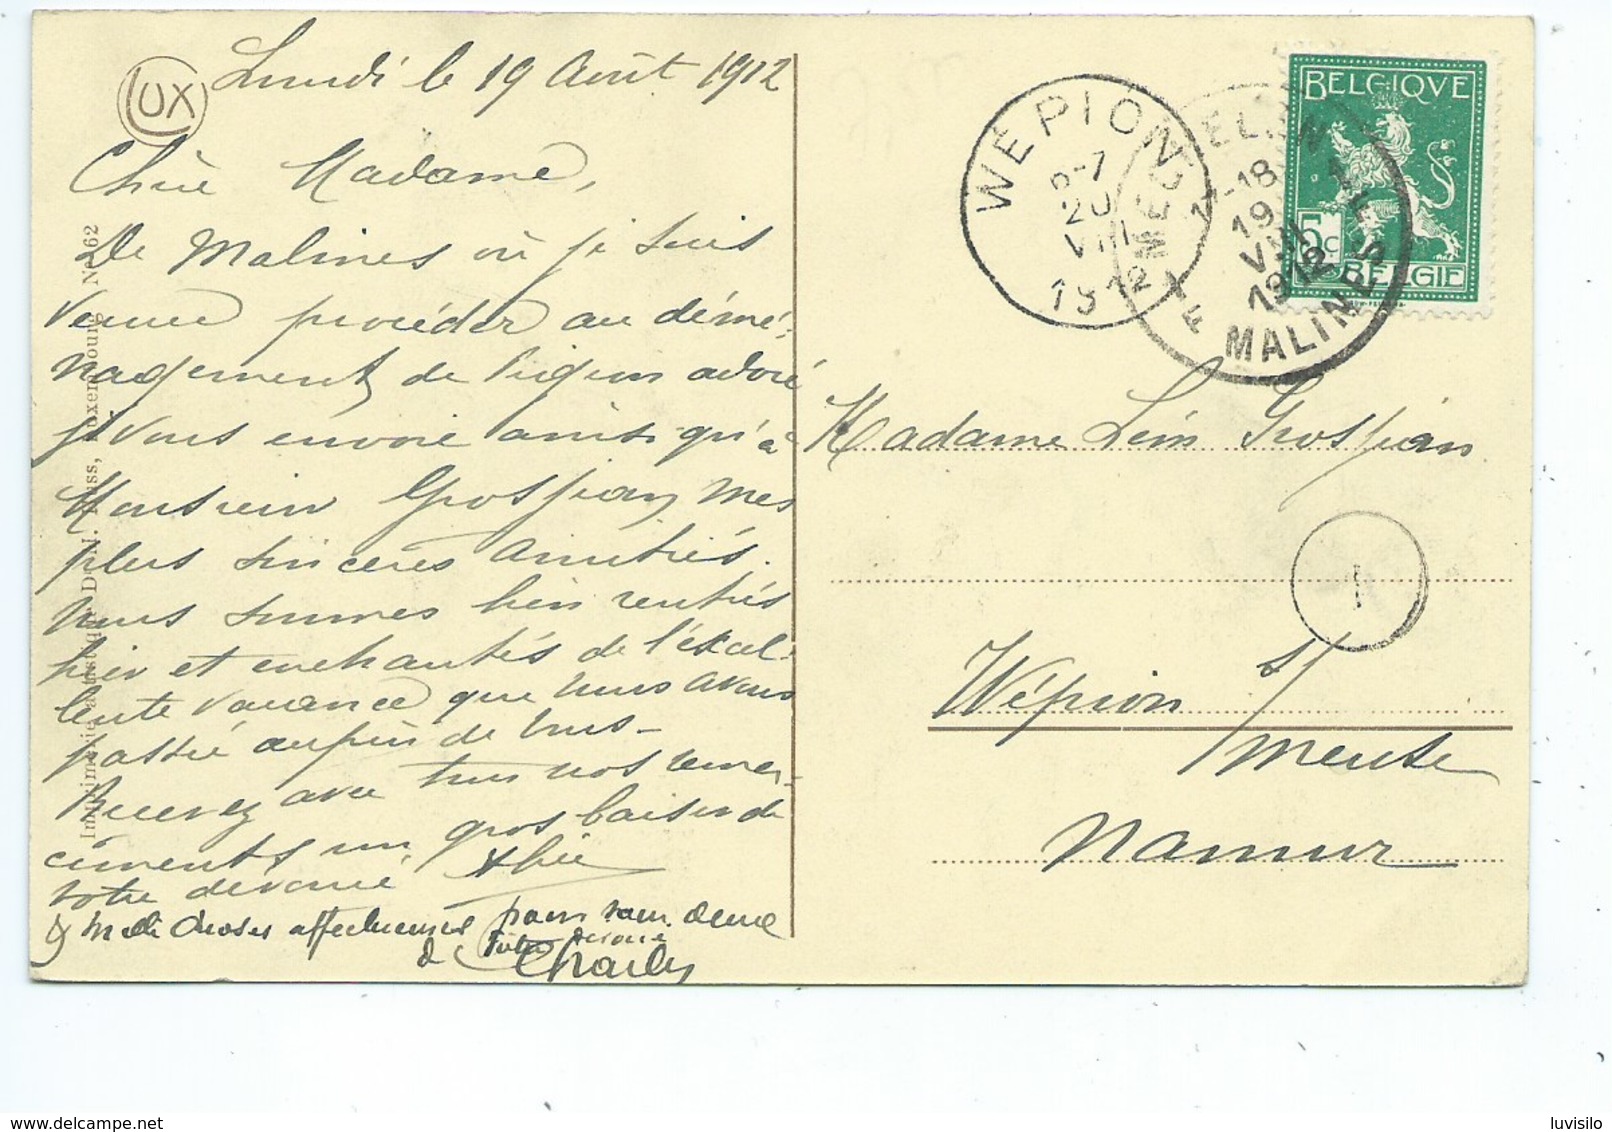 Lundi le 19 Août 1912
LUX
Chère Madame,
De Malines où je suis
venue procéder au démé-
nagement de Pigeon adoré
je vous envoie ainsi qu'à
Monsieur Grosjean mes
plus sincères amitiés.
Nous sommes bien rentrés
hier et enchantés de l'excel-
lente vacance que nous avons
passée auprès de vous -
Recevez avec tous nos remer-
ciements un gros baiser de
votre dévouée
Mille choses affectueuses
de
votre dévoué
Charley
Imprimerie artistique
Luxembourg N° 62
WÉPION
20
VIII
1912
MECHELEN
11-18
19
VIII
1912
MALINES
BELGIQUE
5c
BELGIE
Madame Léon Grosjean
1
Wépion s/
Meuse
Namur
luvisilo